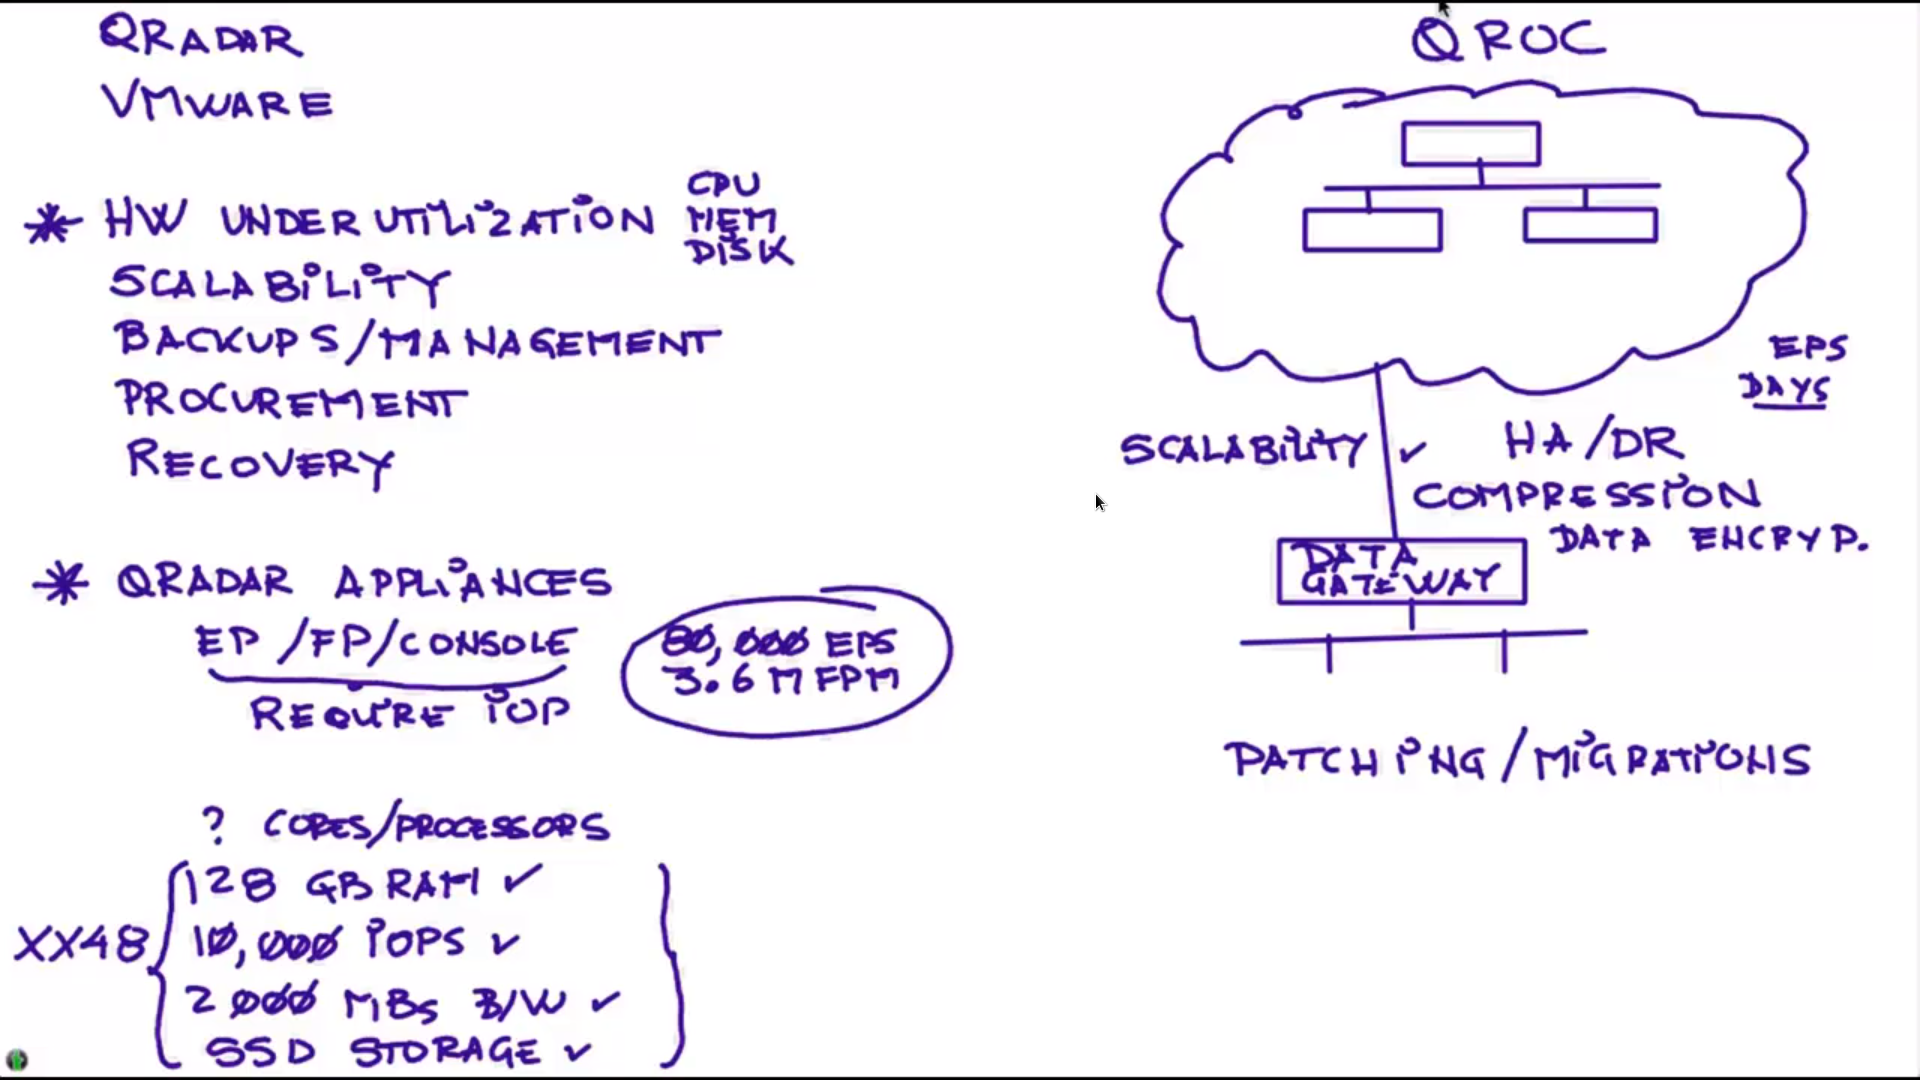 QRADAR
VMWARE
* HW UNDERUTILIZATION
CPU
MEM
DISK
SCALABILITY
BACKUPS/MANAGEMENT
PROCUREMENT
RECOVERY
* QRADAR APPLIANCES
EP/FP/CONSOLE
REQUIRE IOP
80,000 EPS
3.6M FPM
? CORES/PROCESSORS
XX48
128 GB RAM ✓
10,000 IOPS ✓
2000 MBs B/W ✓
SSD STORAGE ✓
QROC
EPS
DAYS
SCALABILITY ✓
HA/DR
COMPRESSION
DATA ENCRYP.
DATA
GATEWAY
PATCHING/MIGRATIONS